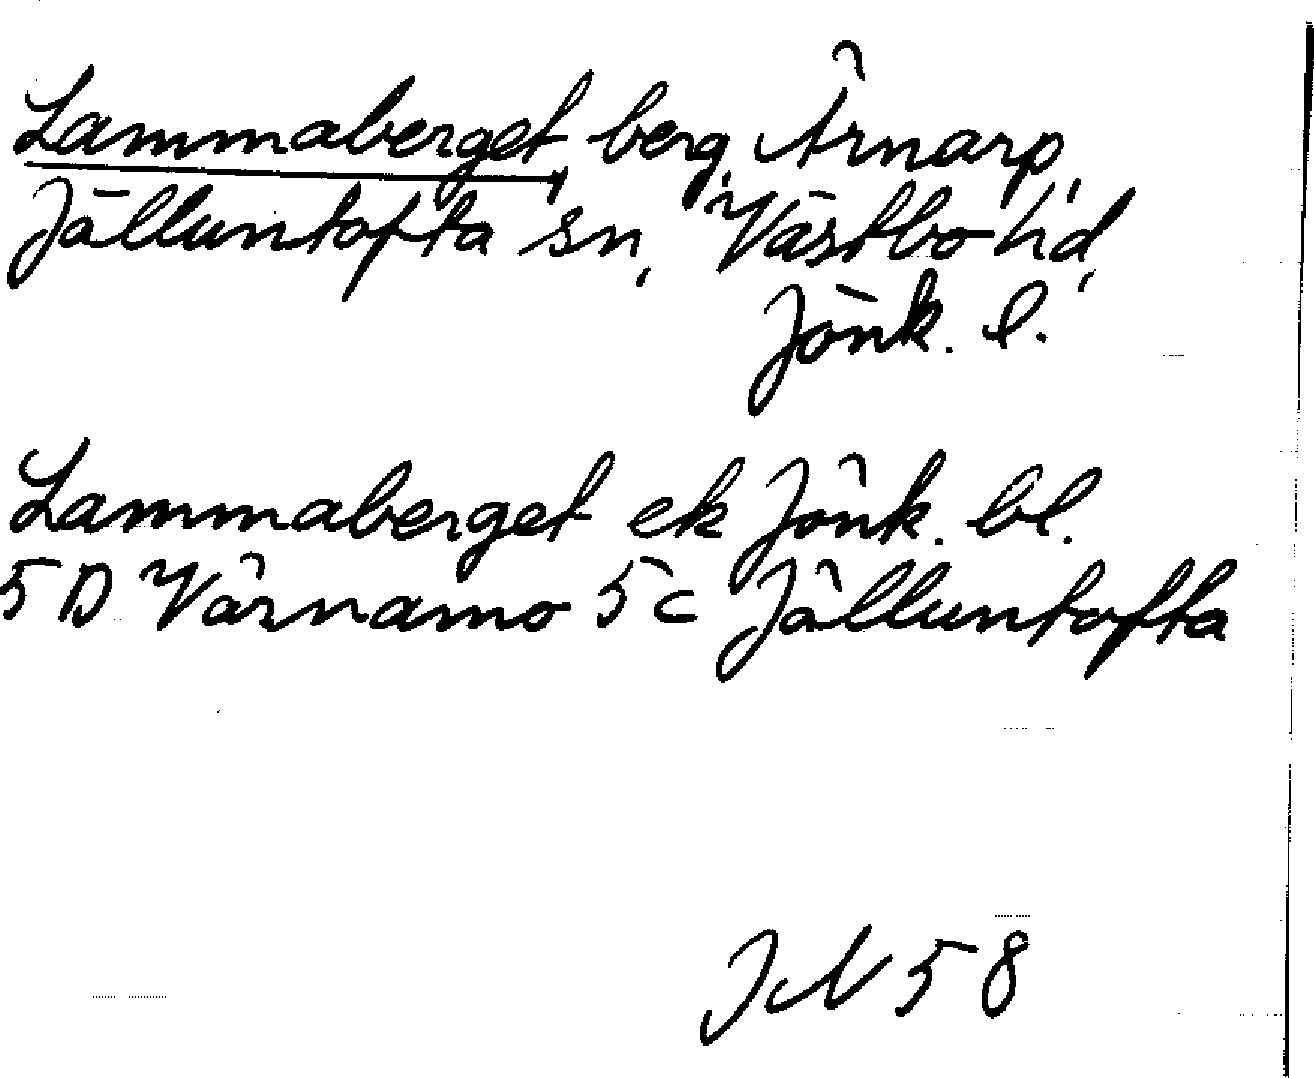 Lammaberget, berg, Ärnarp,
Jälluntofta sn, Västbo hd,
Jönk. l.
Lammaberget ek Jönk. bl.
5D Värnamo 5c Jälluntofta
JN 58